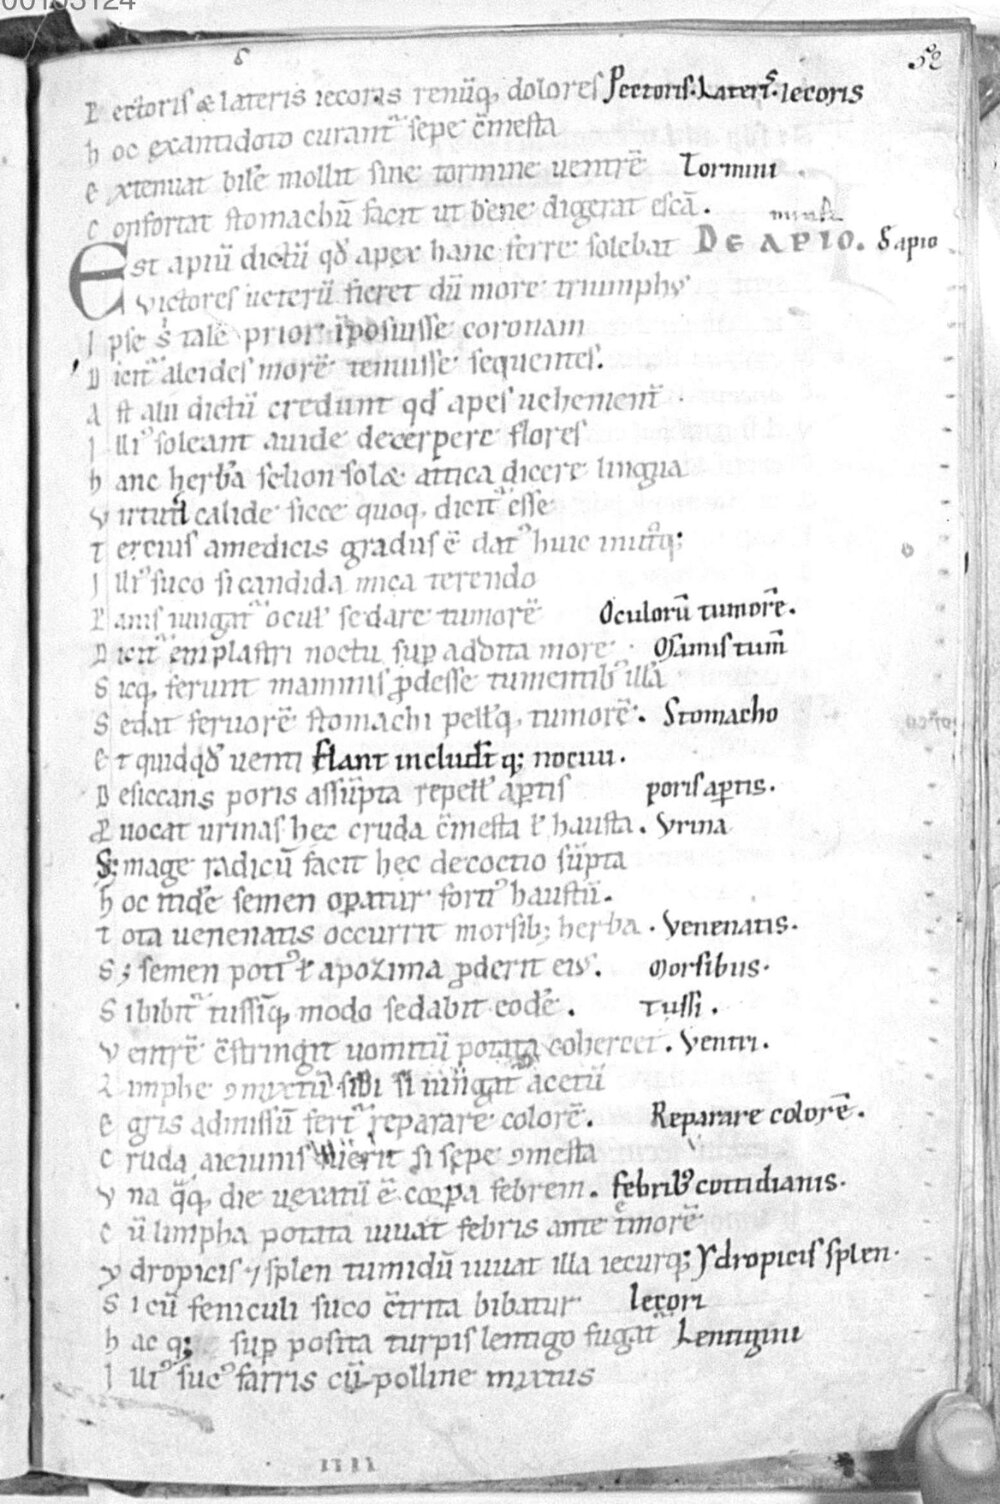 00133124
52
Pectoris & lateris iecoris renūq, dolores Pectoris. Lateris. Iecoris
hoc exantidoto curant sepe c̄mesta
extenuat bile mollit sine tormine uentrē Tormini
confortat stomachū facit ut bene digerat escā.
Est apiū dictū qđ apex hanc ferre solebat DE APIO. Sapio
Victores ueterū fieret dū more triumphus
Ipse s; talē prior īposuisse coronam
Dicit᷑ alcides morē tenuisse sequentes.
Ast alii dictū credunt qđ apes uehement᷑
Illi᾽ soleant auide decerpere flores
hanc herbā selion solæ attica dicere lingua
Virtutū calide sicce quoq, dicit᷑ esse
tercius amedicis gradus ē dat᾽ huic in utrq;
Illi᾽ suco si candida mica terendo
Panis iungat᷑ oculoꝝ sedare tumorē Oculorū tumorē.
Dicit᷑ emplastri noctu sup addita more. Mamis tum̄
Sicq, ferunt mammis ꝓdesse tumentib᾽ illā
Sedat feruorē stomachi pellitq, tumorē. Stomacho
Et quidqđ uenti flant includit q; nociui.
Desiccans poris assūpta repellit aꝑtis porisaꝑtis.
Ꝓuocat urinas hec cruda c̄mesta ł hausta. Vrina
S; mage radicū facit hec decoctio sūpta
hoc inde semen oꝑatur forti᾽ haustū.
tota uenenatis occurrit morsib; herba. Venenatis.
S; semen poti᾽ ł apozima ꝓderit eius. Morsibus.
Si bibit᷑ tussīq, modo sedabit eodē. Tussi.
Ventrē c̄stringit uomitū potata cohercet. Ventri.
Limphe ꝯmixtū sibi si iūgat᷑ acetū
Egris admissū fert᷑ reparare colorē. Reparare colorē.
Cruda aieiunis fuerit si sepe ꝯmesta
Vna q̄q, die uexatū ē corpa febrem. febrib᾽ cottidianis.
Cū limpha potata iuuat febris ante t̄morē
ydropicis ⁊ splen tumidū iuuat illa iecurq; ydropicis splen.
Si cū feniculi suco c̄trita bibatur Iecori
hac q; sup posita turpis lentigo fugat᷑ Lentigini
Illi᾽ suc᾽ farris cū polline mixtus
IIII